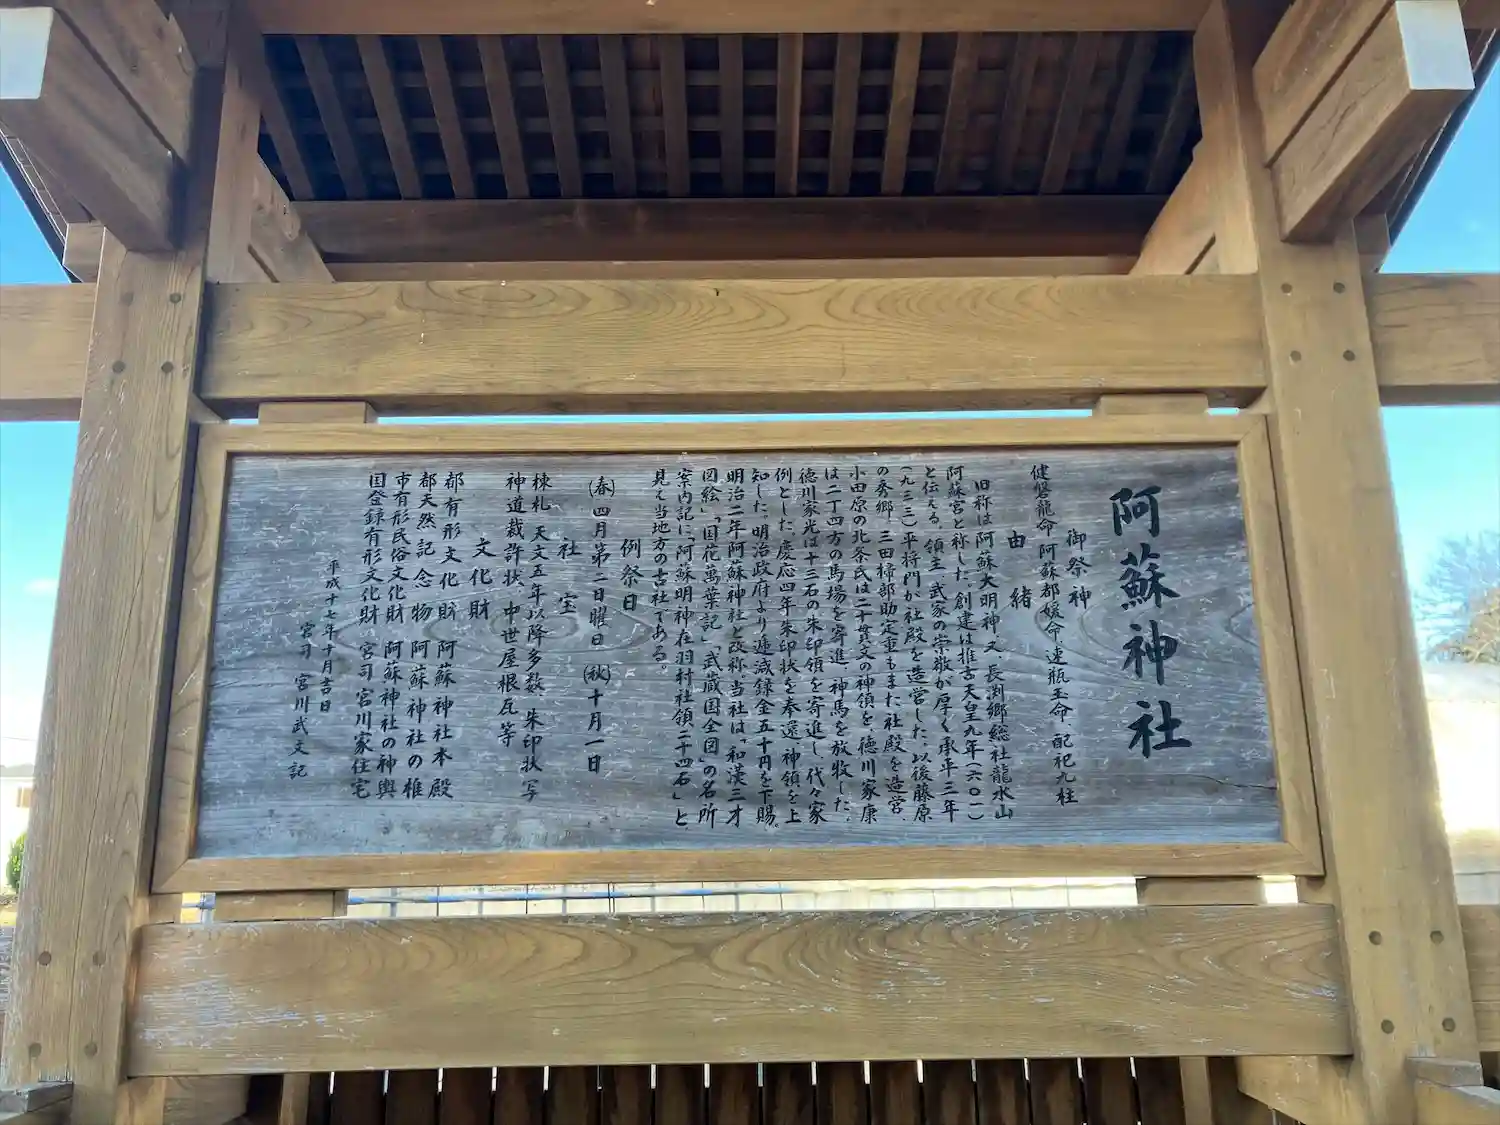 阿蘇神社
御祭神
健磐龍命 阿蘇都媛命 速瓶玉命 配祀九柱
由緒
旧称は阿蘇大明神又、長渕郷総社龍水山
阿蘇宮と称した。創建は推古天皇九年(六〇一)
と伝える。領主、武家の崇敬が厚く承平三年
(九三三)平将門が社殿を造営した。以後藤原
の秀郷、三田掃部助定重もまた社殿を造営、
小田原の北条氏は二十貫文の神領を、徳川家康
は二丁四方の馬場を寄進、神馬を放牧した。
徳川家光は十三石の朱印領を寄進し、代々家
例とした。慶応四年朱印状を奉還、神領を上
知した。明治政府より逓減録金五十円を下賜。
明治二年阿蘇神社と改称。当社は「和漢三才
図絵」「国花萬葉記」「武蔵国全図」の名所
案内記に「阿蘇明神在羽村社領二十四石」と
見え当地方の古社である。
例祭日
(春)四月第二日曜日 (秋)十月一日
社宝
棟札 天文五年以降多数 朱印状写
神道裁許状 中世屋根瓦等
文化財
都有形文化財 阿蘇神社本殿
都天然記念物 阿蘇神社の椎
市有形民俗文化財 阿蘇神社の神輿
国登録有形文化財 宮司 宮川家住宅
平成十七年十月吉日
宮司 宮川武文記